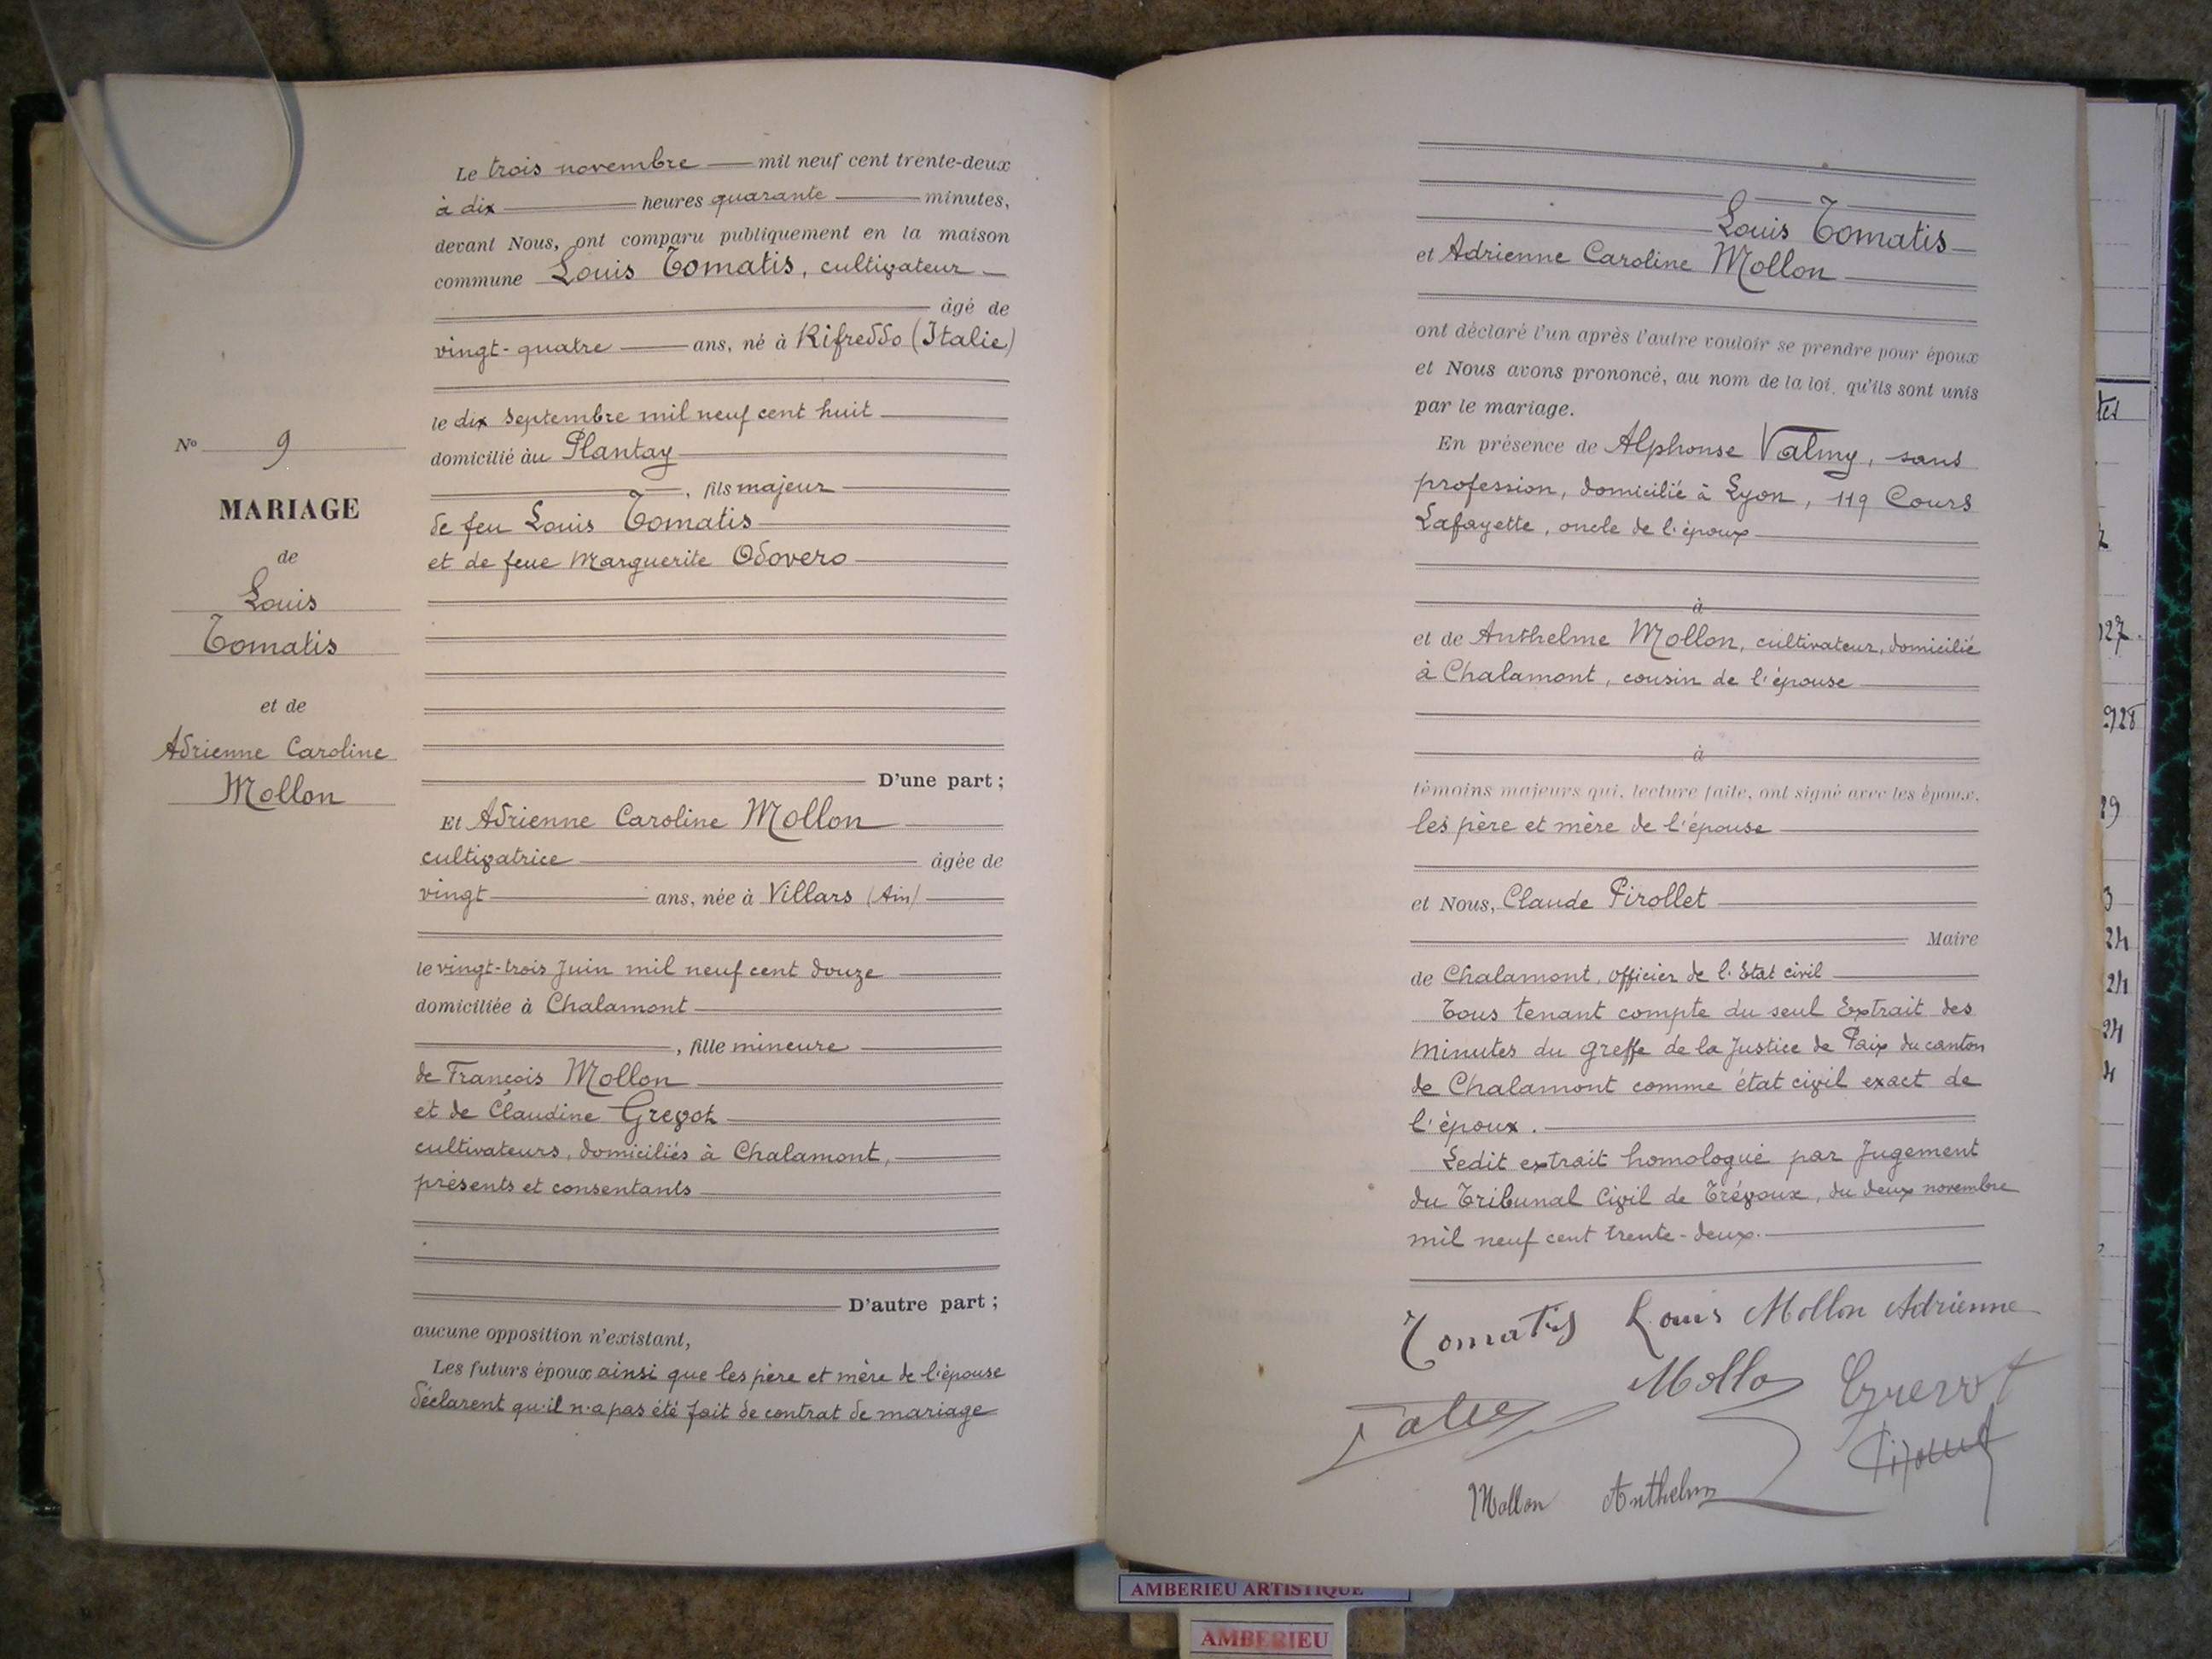 Le trois novembre mil neuf cent trente-deux
à dix heures quarante minutes,
devant Nous, ont comparu publiquement en la maison
commune Louis Tomatis, cultivateur
âgé de
vingt-quatre ans, né à Rifreddo (Italie)
le dix Septembre mil neuf cent huit
domicilié au Plantay
, fils majeur
de feu Louis Tomatis
et de feue Marguerite Odovero
D'une part ;
Et Adrienne Caroline Mollon
cultivatrice âgée de
vingt ans, née à Villars (Ain)
le vingt-trois Juin mil neuf cent douze
domiciliée à Chalamont
, fille mineure
de François Mollon
et de Claudine Grevot
cultivateurs, domiciliés à Chalamont,
présents et consentants
D'autre part ;
aucune opposition n'existant,
Les futurs époux ainsi que les père et mère de l'épouse
déclarent qu'il n'a pas été fait de contrat de mariage
No 9
MARIAGE
de
Louis
Tomatis
et de
Adrienne Caroline
Mollon
Louis Tomatis
et Adrienne Caroline Mollon
ont déclaré l'un après l'autre vouloir se prendre pour époux
et Nous avons prononcé, au nom de la loi, qu'ils sont unis
par le mariage.
En présence de Alphonse Valmy, sans
profession, domicilié à Lyon, 119 Cours
Lafayette, oncle de l'époux
à
et de Anthelme Mollon, cultivateur, domicilié
à Chalamont, cousin de l'épouse
à
témoins majeurs qui, lecture faite, ont signé avec les époux,
les père et mère de l'épouse
et Nous, Claude Pirollet
Maire
de Chalamont, officier de l'Etat civil
Tous tenant compte du seul Extrait des
Minutes du Greffe de la Justice de Paix du canton
de Chalamont comme état civil exact de
l'époux.
Ledit extrait homologué par Jugement
du Tribunal Civil de Trévoux, du deux novembre
mil neuf cent trente-deux.
Tomatis Louis Mollon Adrienne
Mollon Grevot
Mollon Anthelm
AMBERIEU ARTISTIQUE
AMBERIEU